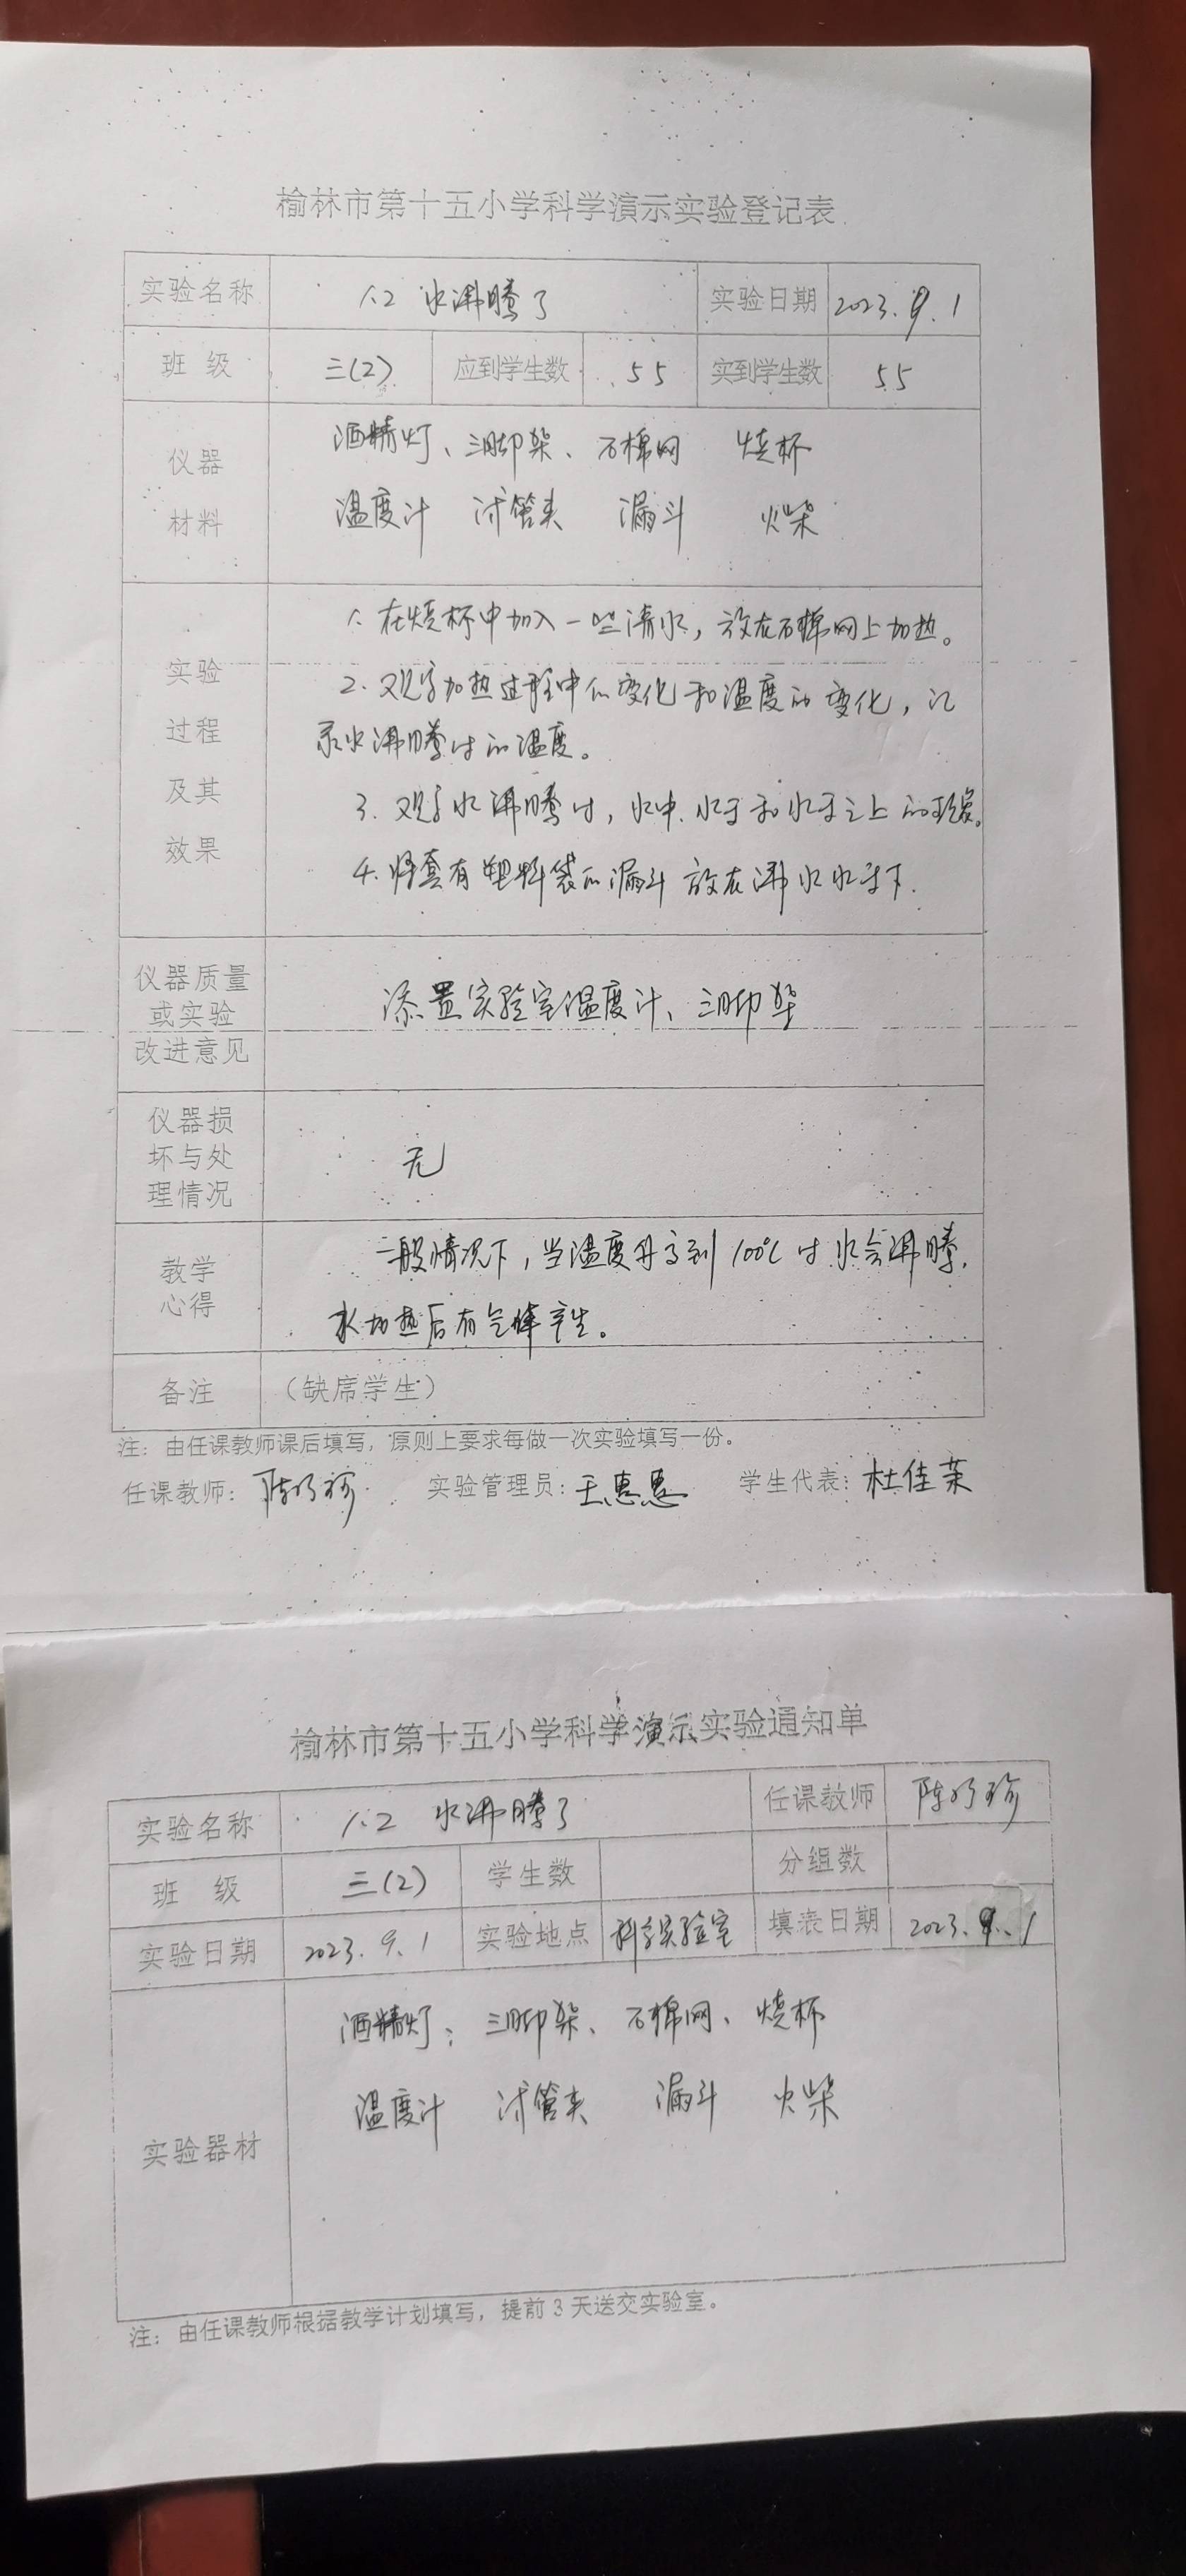 榆林市第十五小学科学演示实验登记表
实验名称 1.2 水沸腾了 实验日期 2023.9.1
班 级 三(2) 应到学生数 55 实到学生数 55
仪器 材料
酒精灯、三脚架、石棉网 烧杯
温度计 试管夹 漏斗 火柴
实验 过程 及其 效果
1. 在烧杯中加入一些清水，放在石棉网上加热。
2. 观察加热过程中的变化和温度的变化，记
录水沸腾时的温度。
3. 观察水沸腾时，水中、水面和水面之上的现象。
4. 将套有塑料袋的漏斗放在沸水水面下.
仪器质量
或实验
改进意见
添置实验室温度计、三脚架
仪器损
坏与处
理情况
无
教学
心得
一般情况下，当温度升高到100℃时水会沸腾，
水加热后有气体产生。
备注 （缺席学生）
注：由任课教师课后填写，原则上要求每做一次实验填写一份。
任课教师： 实验管理员：王惠惠 学生代表：杜佳茉
榆林市第十五小学科学演示实验通知单
实验名称 1.2 水沸腾了 任课教师
班 级 三(2) 学生数 分组数
实验日期 2023.9.1 实验地点 科学实验室 填表日期 2023.9.1
实验器材
酒精灯、三脚架、石棉网、烧杯
温度计 试管夹 漏斗 火柴
注：由任课教师根据教学计划填写，提前3天送交实验室。